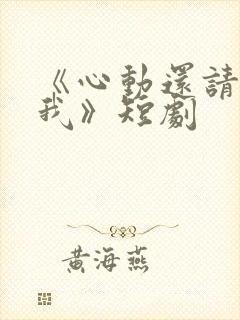 《心動還請
我》短劇
黃海燕